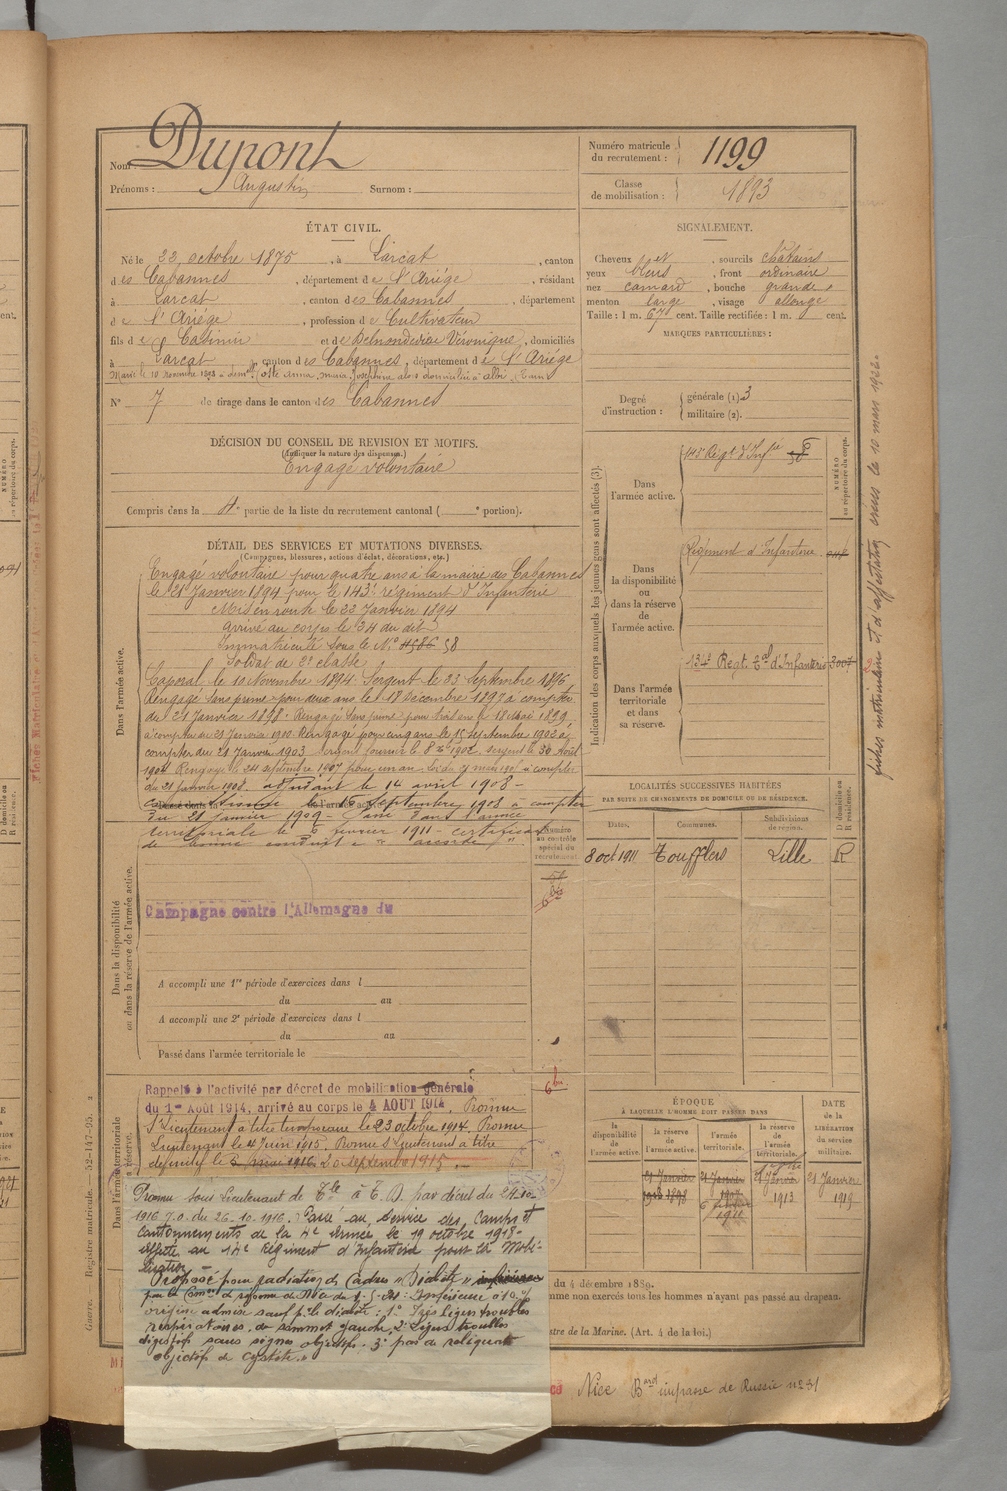 Nom : Dupont
Prénoms : Augustin Surnom :
Numéro matricule du recrutement : 1199
Classe de mobilisation : 1893
ÉTAT CIVIL.
Né le 22 octobre 1875, à Larcat, canton
des Cabannes, département de l'Ariége, résidant
à Larcat, canton des Cabannes, département
de l'Ariége, profession de Cultivateur
fils de Casimir et de Véronique, domiciliés
à Larcat, canton des Cabannes, département de l'Ariége
Marié le 10 novembre à Anna, Maria, Joséphine alors domiciliée à Albi (Tarn)
N° 7 de tirage dans le canton des Cabannes
SIGNALEMENT.
Cheveux et, sourcils châtains
yeux bleus, front ordinaire
nez camard, bouche grande
menton large, visage allongé
Taille : 1 m. 67 cent. Taille rectifiée : 1 m. cent.
MARQUES PARTICULIÈRES :
Degré d'instruction : générale (1) 3
militaire (2).
DÉCISION DU CONSEIL DE REVISION ET MOTIFS.
(Indiquer la nature des dispenses.)
Engagé volontaire
Compris dans la 4e partie de la liste du recrutement cantonal ( portion).
DÉTAIL DES SERVICES ET MUTATIONS DIVERSES.
(Campagnes, blessures, actions d'éclat, décorations, etc.)
Dans l'armée active.
Engagé volontaire pour quatre ans à la mairie des Cabannes
le 21 Janvier 1894 pour le 143e régiment d'Infanterie
Mis en route le 22 Janvier 1894
Arrivé au corps le 24 du dit
Immatriculé sous le N° 4586 58
Soldat de 2e classe
Caporal le 10 Novembre 1894. Sergent le 23 Septembre 1896
Rengagé sans prime pour deux ans le 18 décembre 1897 à compter
du 21 Janvier 1898. Rengagé sans prime pour trois ans le 18 Mai 1899
à compter du 21 Janvier 1900. Rengagé pour cinq ans le 15 septembre 1902 à
compter du 21 Janvier 1903 Sergent fourrier le 8 1902 sergent le 30 Août
1904 Rengagé le 24 septembre 1907 pour un an à compter
du 21 janvier 1908. adjudant le 14 avril 1908 -
le 16 septembre 1908 à compter
du 21 janvier 1909 - Passé dans l'armée
territoriale le 6 février 1911 - certificat
de bonne conduite "accordé".
Dans la disponibilité ou dans la réserve de l'armée active.
Campagne contre l'Allemagne du
A accompli une 1re période d'exercices dans l
du au
A accompli une 2e période d'exercices dans l
du au
Passé dans l'armée territoriale le
Dans l'armée territoriale
Rappelé à l'activité par décret de mobilisation générale
du 1er Août 1914, arrivé au corps le 4 AOUT 1914. Promu
S/Lieutenant à titre temporaire le 23 octobre 1914. Promu
Lieutenant le 4 Juin 1915. Promu S/Lieutenant à titre
définitif le 2 septembre 1915.
Promu sous Lieutenant de Tle à T.D. par décret du 24-10-
1916 J.O. du 26-10-1916. Passé au service des Camps et
Cantonnements de la 4e Armée le 19 octobre 1918-
affecté au 14e Régiment d'Infanterie pour la Mobi-
lisation
Proposé pour radiation des Cadres "Diabète"
par la Comon de réforme de Nice du Inférieure à 10 %
origine admise sauf p. le diabète : 1° Très légers troubles
respiratoires, du sommet gauche, 2° légers troubles
digestifs sans signes objectifs. 3° pas de reliquats
objectifs de cystite."
Indication des corps auxquels les jeunes gens sont affectés (3).
NUMÉRO au répertoire du corps.
Dans l'armée active.
143e Régt d'Infie 58
Dans la disponibilité ou dans la réserve de l'armée active.
Régiment d'Infanterie
Dans l'armée territoriale et dans sa réserve.
134e Régt Tal d'Infanterie 3007
Numéro au contrôle spécial du recrutement.
LOCALITÉS SUCCESSIVES HABITÉES
PAR SUITE DE CHANGEMENTS DE DOMICILE OU DE RÉSIDENCE.
Dates. Communes. Subdivisions de région. D domicile ou R résidence.
8 oct 1911 Toufflers Lille R
ÉPOQUE
À LAQUELLE L'HOMME DOIT PASSER DANS
la disponibilité de l'armée active.
la réserve de l'armée active.
l'armée territoriale.
la réserve de l'armée territoriale.
DATE de la LIBÉRATION du service militaire.
21 Janvier 1898
21 Janvier 1907
6 février 1911
21 Janvier 1913
21 Janvier 1919
du 4 décembre 1889.
mme non exercés tous les hommes n'ayant pas passé au drapeau.
stre de la Marine. (Art. 4 de la loi.)
Nice Bard impasse de Russie n° 31
fiches matriculaire et d'affectation créées le 10 mars 1922.
Guerre. — Registre matricule. — 52-147-95. 2